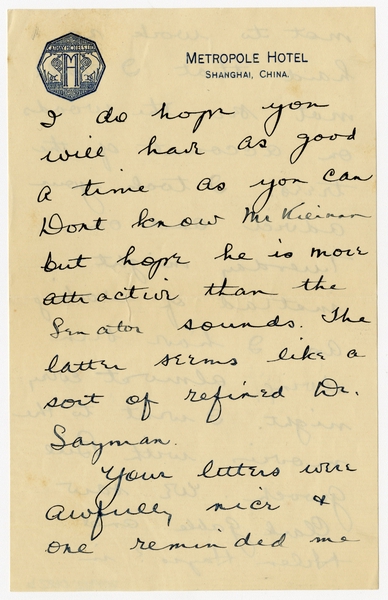 CATHAY HOTELS LTD
METROPOLE HOTEL
SHANGHAI, CHINA.
I do hope you
will have as good
a time as you can
Dont know Mr Kiernan
but hope he is more
attractive than the
Senator sounds. The
latter seems like a
sort of refined Dr.
Sayman.
Your letters were
awfully nice &
one reminded me